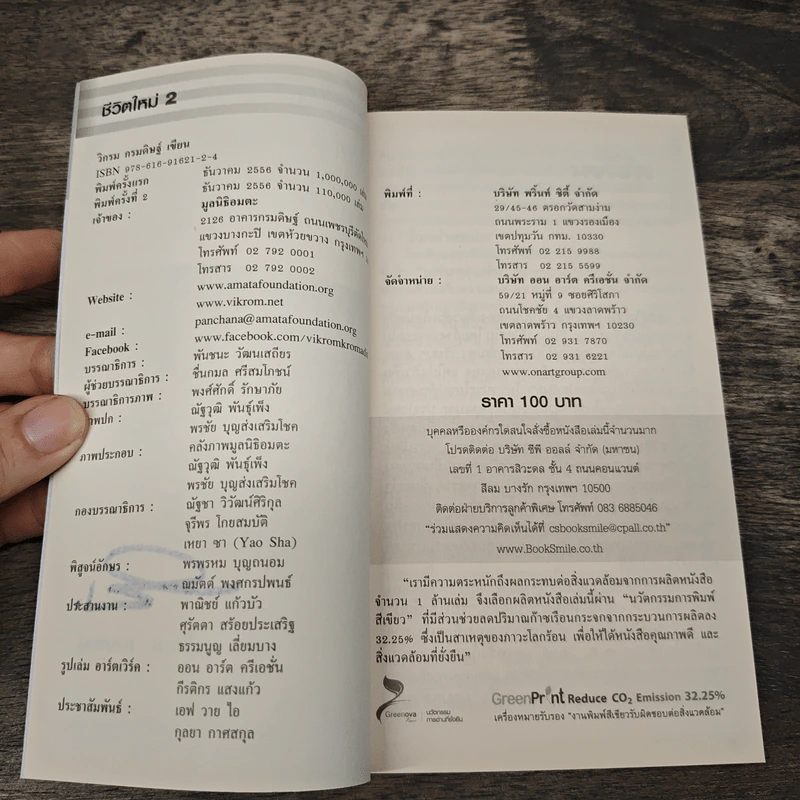 ชีวิตใหม่ 2
วิกรม กรมดิษฐ์ เขียน
ISBN 978-616-91621-2-4
พิมพ์ครั้งแรก ธันวาคม 2556 จำนวน 1,000,000 เล่ม
พิมพ์ครั้งที่ 2 ธันวาคม 2556 จำนวน 110,000 เล่ม
เจ้าของ : มูลนิธิอมตะ
2126 อาคารกรมดิษฐ์ ถนนเพชรบุรีตัดใหม่
แขวงบางกะปิ เขตห้วยขวาง กรุงเทพฯ
โทรศัพท์ 02 792 0001
โทรสาร 02 792 0002
Website : www.amatafoundation.org
www.vikrom.net
e-mail : panchana@amatafoundation.org
Facebook : www.facebook.com/vikromkromadit
บรรณาธิการ : พันชนะ วัฒนเสถียร
ผู้ช่วยบรรณาธิการ : ชื่นกมล ศรีสมโภชน์
บรรณาธิการภาพ : พงศ์ศักดิ์ รักษาภัย
ภาพปก : ณัฐวุฒิ พันธุ์เพ็ง
พรชัย บุญส่งเสริมโชค
ภาพประกอบ : คลังภาพมูลนิธิอมตะ
ณัฐวุฒิ พันธุ์เพ็ง
พรชัย บุญส่งเสริมโชค
กองบรรณาธิการ : ณัฐชา วิวัฒน์ศิริกุล
จุรีพร โกยสมบัติ
เหยา ซา (Yao Sha)
พิสูจน์อักษร : พรพรหม บุญถนอม
ณมัตต์ พงศกรปพนธ์
ประสานงาน : พาณิชย์ แก้วบัว
ศุรัตดา สร้อยประเสริฐ
ธรรมนูญ เลี่ยมบาง
รูปเล่ม อาร์ตเวิร์ค : ออน อาร์ต ครีเอชั่น
กีรติกร แสงแก้ว
ประชาสัมพันธ์ : เอฟ วาย ไอ
กุลยา กาศสกุล
พิมพ์ที่ : บริษัท พริ้นท์ ซิตี้ จำกัด
29/45-46 ตรอกวัดสามง่าม
ถนนพระราม 1 แขวงรองเมือง
เขตปทุมวัน กทม. 10330
โทรศัพท์ 02 215 9988
โทรสาร 02 215 5599
จัดจำหน่าย : บริษัท ออน อาร์ต ครีเอชั่น จำกัด
59/21 หมู่ที่ 9 ซอยศิริโสภา
ถนนโชคชัย 4 แขวงลาดพร้าว
เขตลาดพร้าว กรุงเทพฯ 10230
โทรศัพท์ 02 931 7870
โทรสาร 02 931 6221
www.onartgroup.com
ราคา 100 บาท
บุคคลหรือองค์กรใดสนใจสั่งซื้อหนังสือเล่มนี้จำนวนมาก
โปรดติดต่อ บริษัท ซีพี ออลล์ จำกัด (มหาชน)
เลขที่ 1 อาคารสิวะดล ชั้น 4 ถนนคอนแวนต์
สีลม บางรัก กรุงเทพฯ 10500
ติดต่อฝ่ายบริการลูกค้าพิเศษ โทรศัพท์ 083 6885046
“ร่วมแสดงความคิดเห็นได้ที่ csbooksmile@cpall.co.th”
www.BookSmile.co.th
“เรามีความตระหนักถึงผลกระทบต่อสิ่งแวดล้อมจากการผลิตหนังสือ
จำนวน 1 ล้านเล่ม จึงเลือกผลิตหนังสือเล่มนี้ผ่าน “นวัตกรรมการพิมพ์
สีเขียว” ที่มีส่วนช่วยลดปริมาณก๊าซเรือนกระจกจากกระบวนการผลิตลง
32.25% ซึ่งเป็นสาเหตุของภาวะโลกร้อน เพื่อให้ได้หนังสือคุณภาพดี และ
สิ่งแวดล้อมที่ยั่งยืน”
Greenova
นวัตกรรม
การอ่านที่ยั่งยืน
GreenPrint Reduce CO2 Emission 32.25%
เครื่องหมายรับรอง “งานพิมพ์สีเขียวรับผิดชอบต่อสิ่งแวดล้อม”